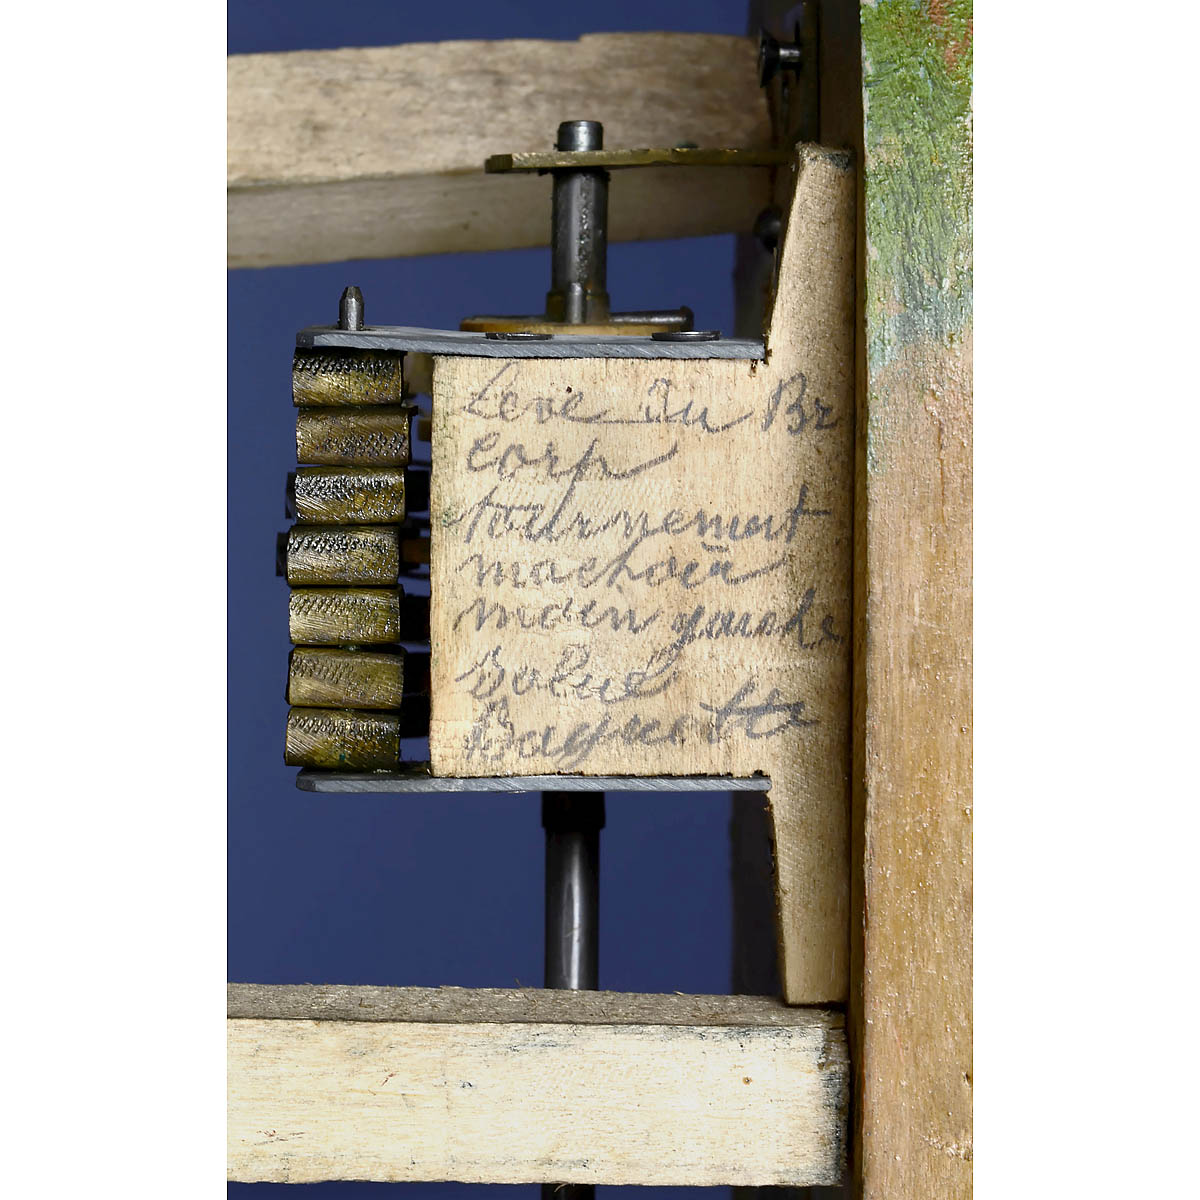 Leve du Br
corp
tournement
machoir
main gauche
Salue
Baguette